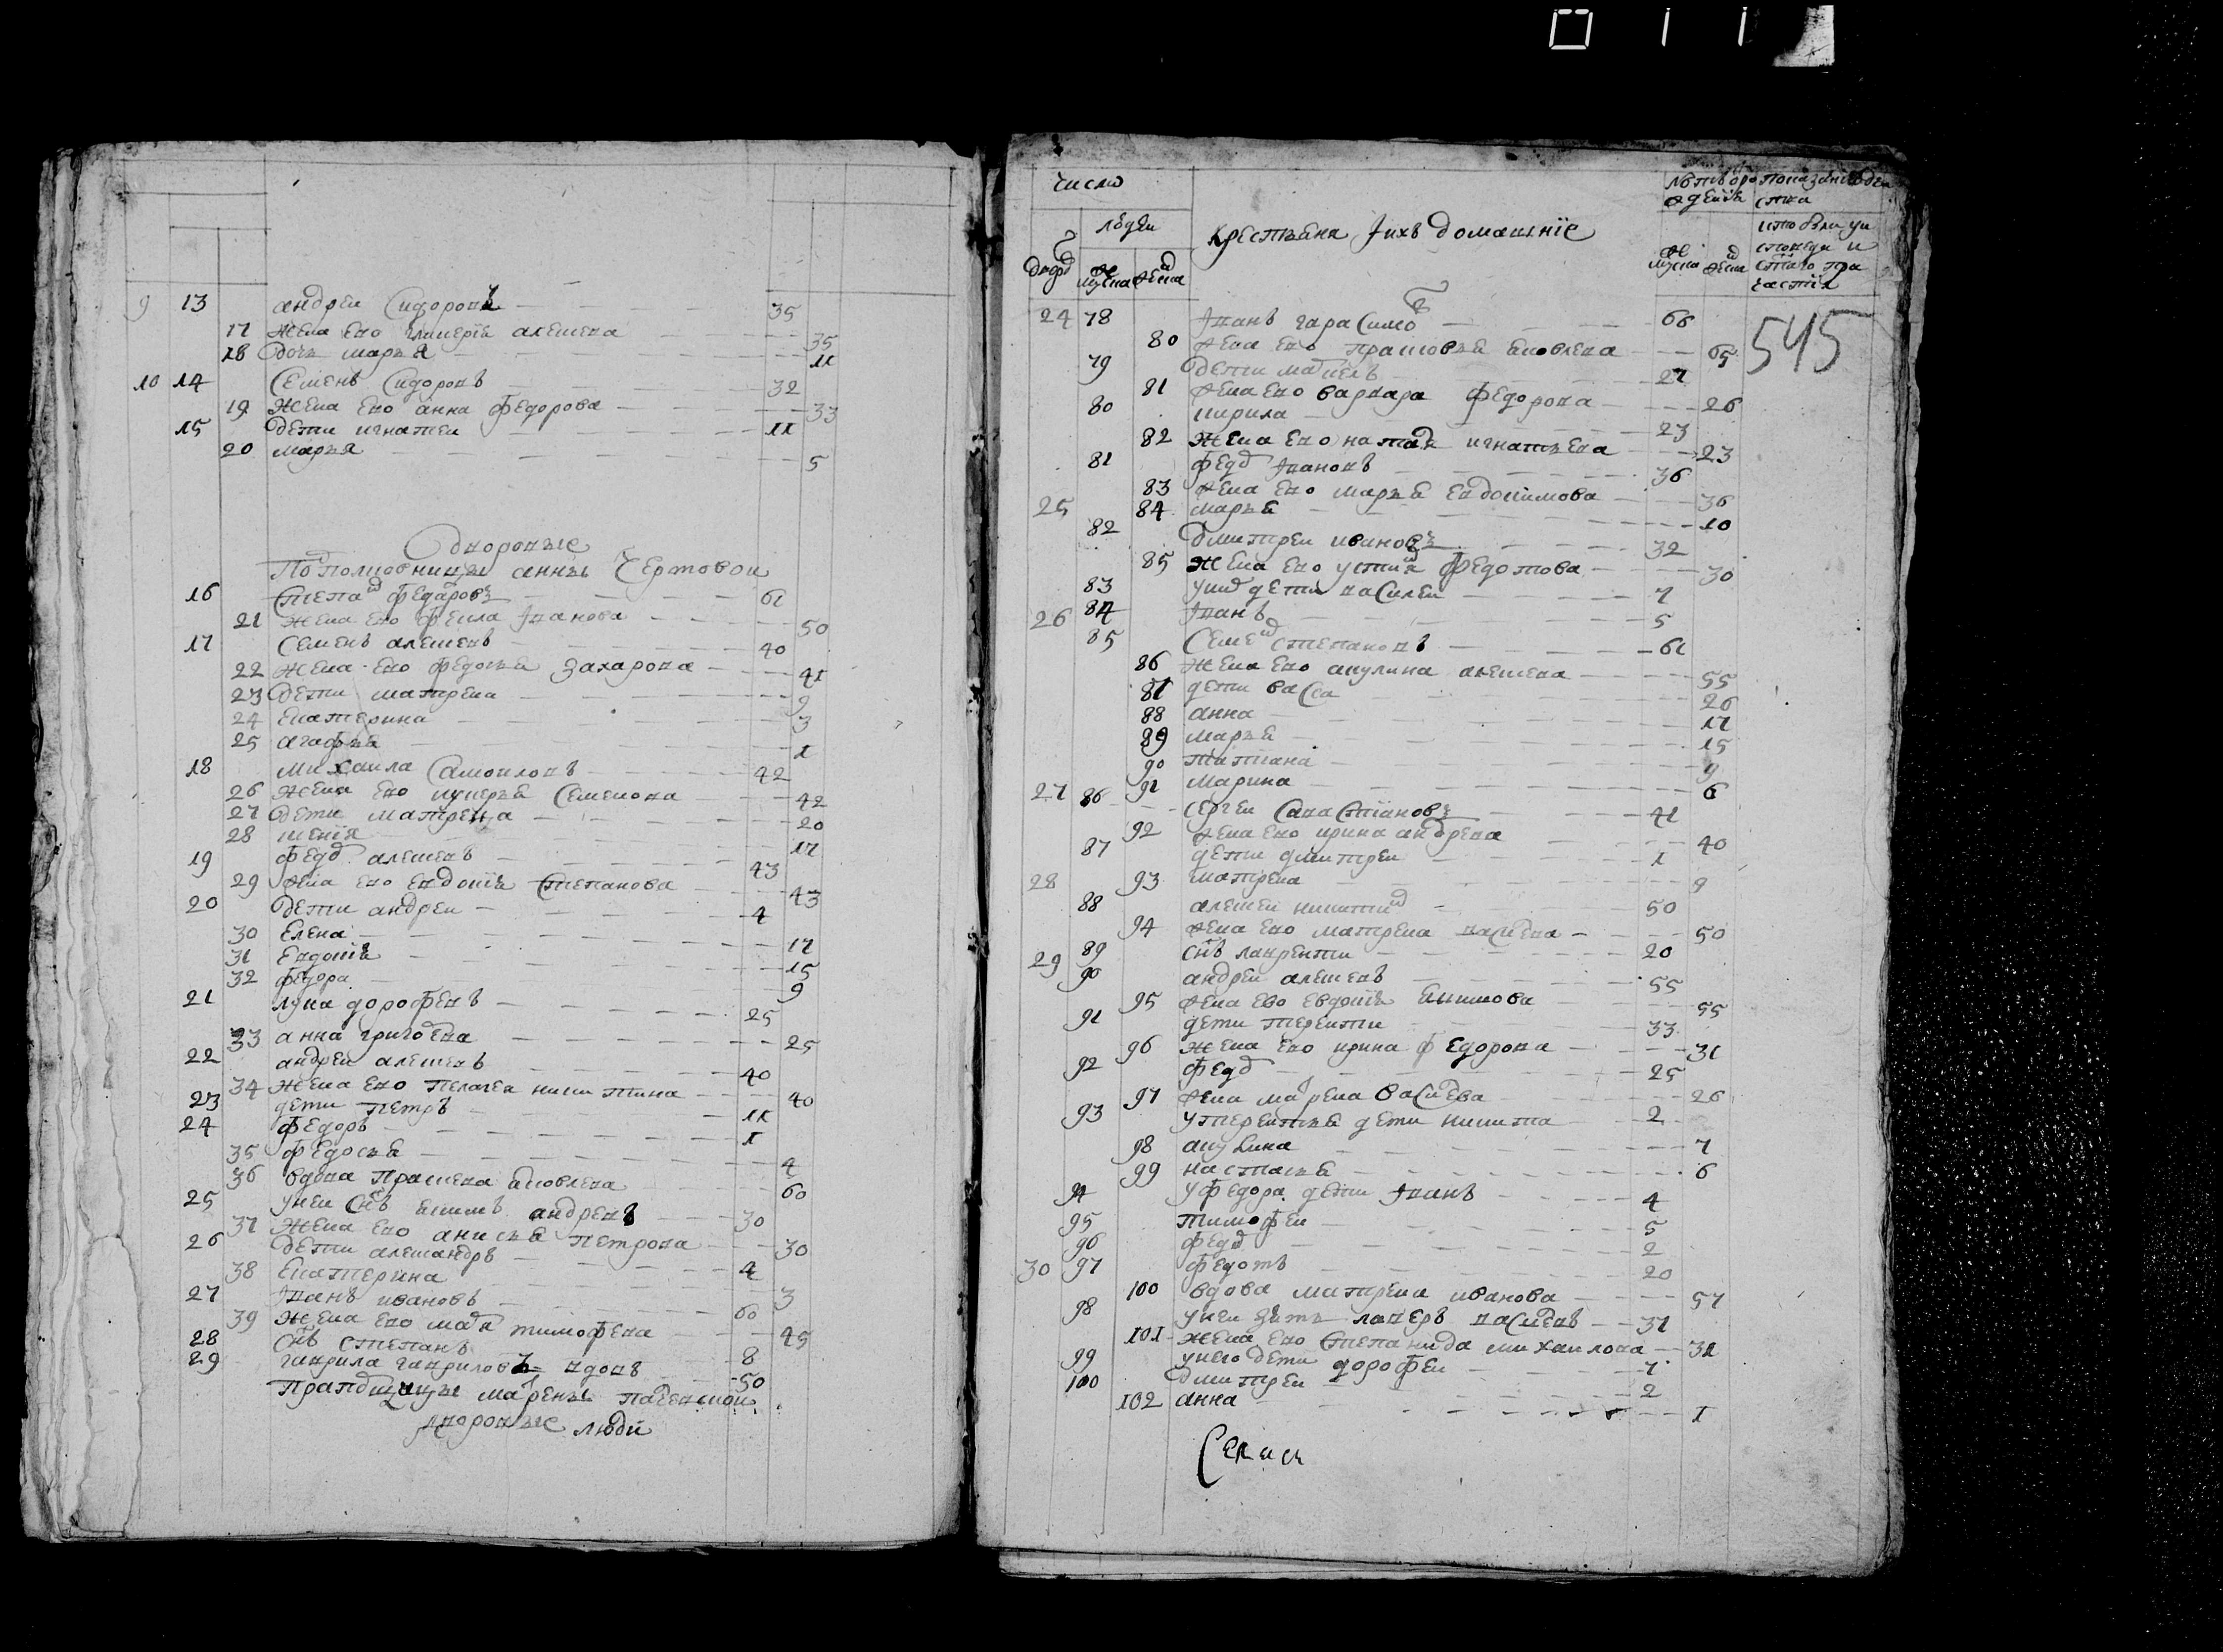 9 13 андреи Сидоровъ 35
17 жена ево гликерiя алеѯеева 35
18 дочь марья 11
10 14 Семенъ Сидоровъ 32
19 жена ево анна федорова 33
15 дети игнатеи 11
20 марья 5
Дворовые
Подполковницы анны Чертовои
16 Степан федоровъ 61
21 жена ево фекла Iванова 50
17 Семенъ алеѯеевъ 40
22 жена ево федосья Захарова 41
23 дети матрена 9
24 екатерина 3
25 агафья 1
18 михаила Самоиловъ 42
26 жена ево лукерья Семенова 42
27 дети матрена 20
28 17
19 федор алеѯеевъ 43
29 жена ево евдокiя Степанова 43
20 дети андреи 4
30 Елена 17
31 Евдокiя 15
32 федора 9
21 лука дорофеевъ 25
33 анна григорева 25
22 андреи алеѯеевъ 40
34 жена ево Пелагея никитина 40
23 дети петръ 11
24 федоръ 1
35 федосья 4
36 вдова Праскева яковлева 60
25 унеи снъ якимъ андреевъ 30
37 жена ево анисья петрова 30
26 дети алеѯандръ 4
38 Екатерина 3
27 Iванъ ивановъ 60
39 жена ево тимофеева 45
28 снъ степанъ 8
29 гаврила гавриловъ вдовъ 50
дворовые люди
Число
людеи
дворов
мужска женска
Крестьяня Iихъ домашнiе
Лѣтъ от рождения
мужска женска
545
24 78 Iванъ гарасимов 66
80 жена ево прасковья яковлева 65
79 дети 27
81 жена ево варвара федорова 26
80 кирила 23
82 жена ево наталя игнатьева 23
81 федор Iвановъ 36
83 жена ево марья евдокимова 36
25 84 марья 10
82 дмитреи ивановъ 32
85 жена ево устиня федотова 30
83 у них дети василеи 7
26 84 Iванъ 5
85 Семен степановъ 61
86 жена ево акулина алеѯеева 55
87 дети васса 26
88 анна 17
89 марья 15
90 татiана 9
27 91 марина 6
86 сергеи Савастiановъ 41
92 жена ево ирина андреева 40
87 дети дмитреи 1
28 93 матрена 9
88 алеѯеи никитин 50
94 жена ево матрена васильева 50
29 89 снъ лаврентеи 20
90 андреи алеѯеевъ 55
95 жена ево евдокiя якимова 55
91 дети терентеи 33
96 жена ево ирина федорова 31
92 федор 25
97 жена матрена васильева 26
93 у терентья дети никита 2
98 акулина 7
99 настасья 6
94 у федора дети Iванъ 4
95 тимофеи 5
96 федор 2
30 97 федотъ 20
100 вдова матрена иванова 57
98 унеи зять лаверъ васильевъ 31
101 жена ево степанида михаилова 31
99 у него дети дорофеи 7
100 дмитреи 2
102 анна 1